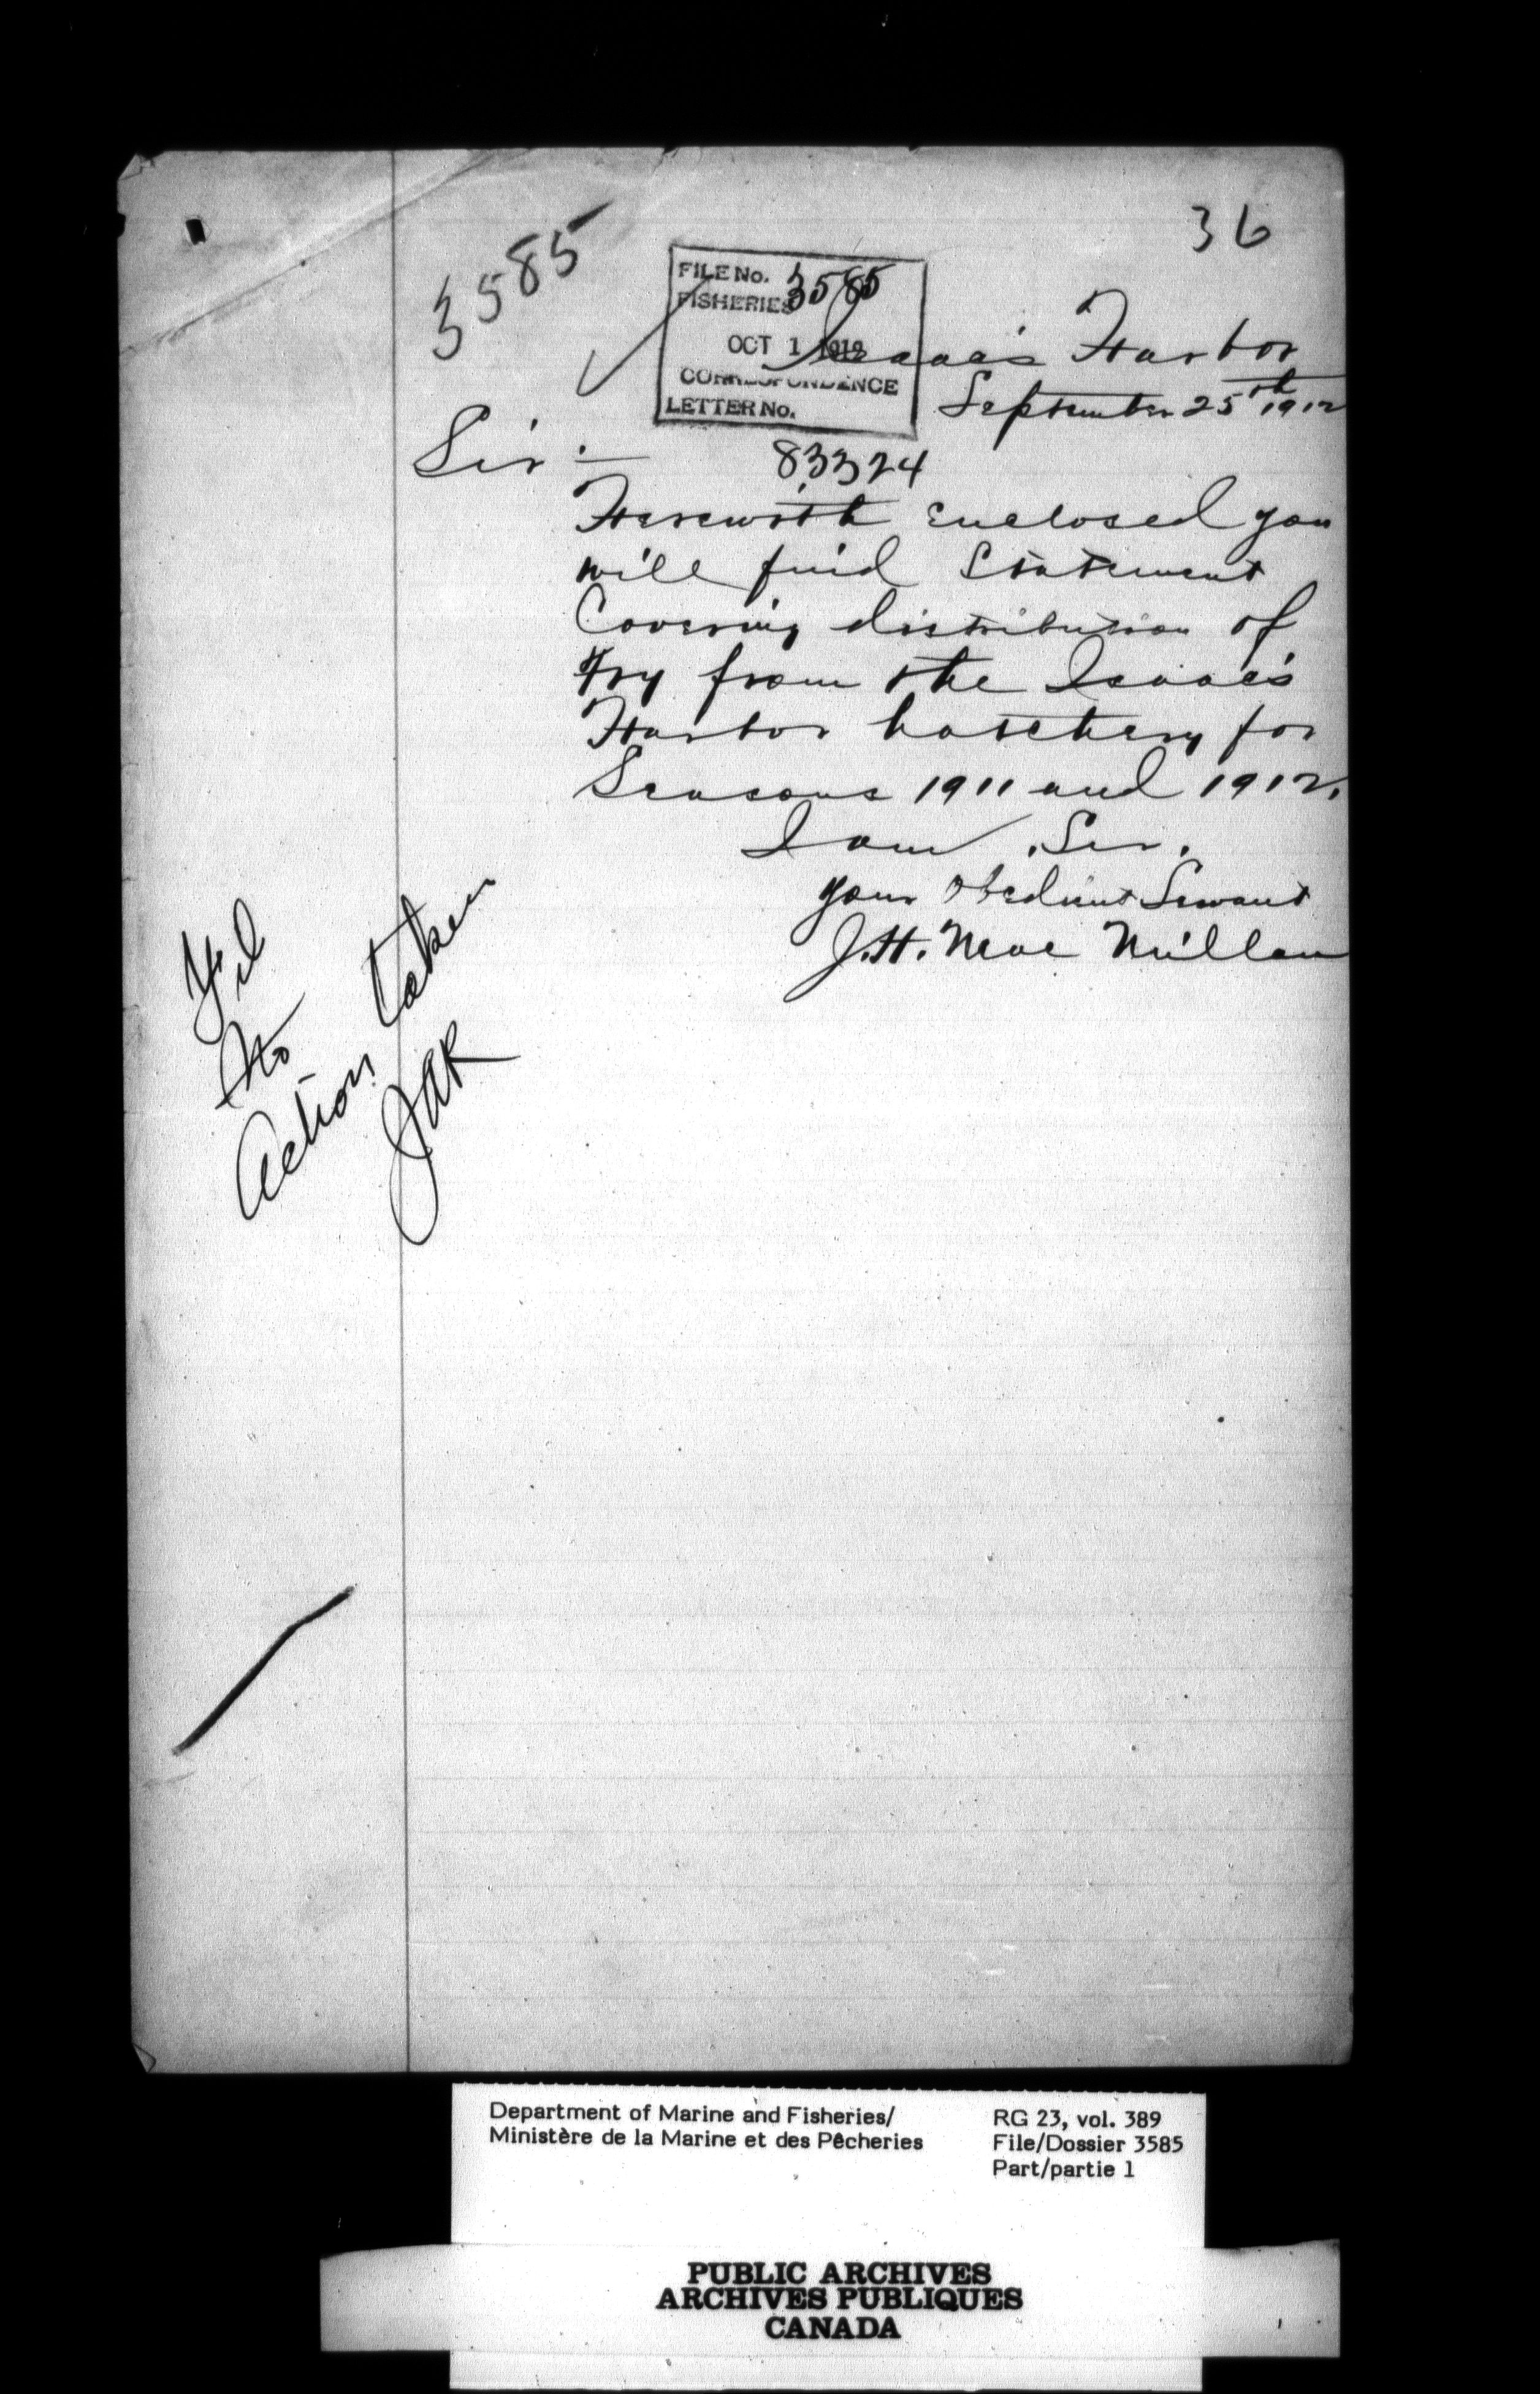 36
3585
FILE No. 3585
FISHERIES
OCT 1 1912
CORRESPONDENCE
LETTER No.
83324
Isaac's Harbor
September 25th 1912
Sir :—
Herewith enclosed you
will find Statement
Covering distribution of
Fry from the Isaac's
Harbor hatchery for
Seasons 1911 and 1912.
I am, Sir,
your obedient Servant
J.H. MacMillan
No
Action taken
JAR
Department of Marine and Fisheries/
Ministère de la Marine et des Pêcheries
RG 23, vol. 389
File/Dossier 3585
Part/partie 1
PUBLIC ARCHIVES
ARCHIVES PUBLIQUES
CANADA